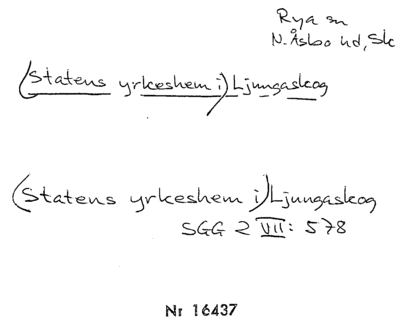 Rya sn
N. Åsbo hd, Sk
(Statens yrkeshem i) Ljungaskog
(Statens yrkeshem i) Ljungaskog
SGG 2 VII: 578
Nr 16437